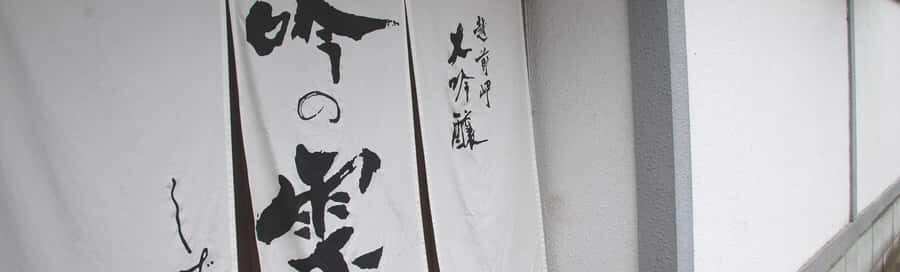 越前岬
大吟醸
吟の雫
しず